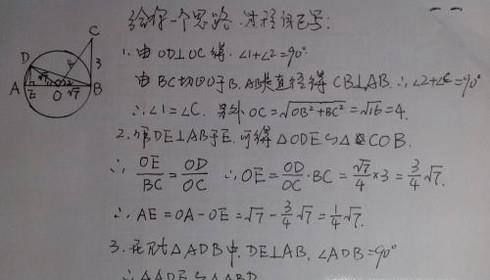 给你一个思路.过程自己写:
1.由OD⊥OC得.∠1+∠2=90°
由BC切⊙O于B.AB是直径得CB⊥AB.∴∠2+∠C=90°
∴∠1=∠C.另外OC=√OB²+BC²=√16=4.
2.作DE⊥AB于E.可得△ODE∽△COB.
∴OE/BC=OD/OC ∴OE=OD/OC·BC=√7/4×3=3/4√7.
∴AE=OA-OE=√7-3/4√7=1/4√7.
3.在Rt△ADB中.DE⊥AB,∠ADB=90°
∴△ADE∽△ABD
C
4
3
D
√7
A
E
O
√7
B